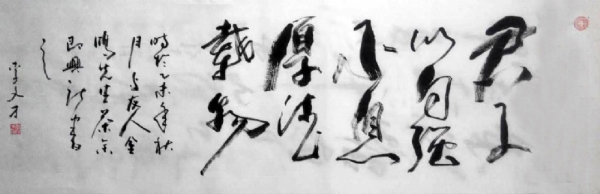 君子
以自强
不息
厚德
载物
时于乙未年秋
月与友人金
鹏先生茶余
即兴所书
之